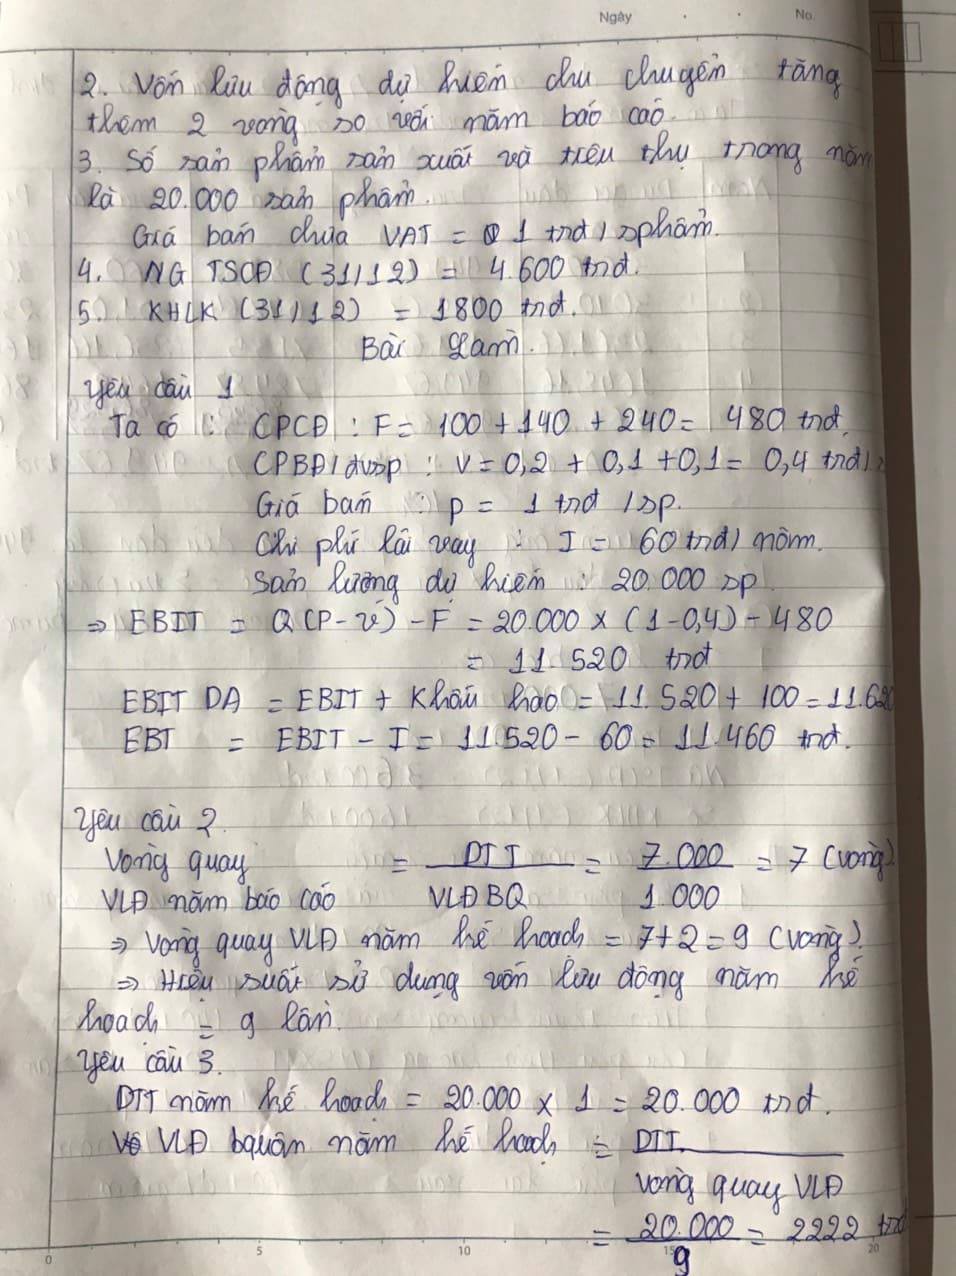 Ngày No.
2. Vốn lưu động dự kiến chu chuyển tăng
thêm 2 vòng so với năm báo cáo.
3. Số sản phẩm sản xuất và tiêu thụ trong năm
là 20.000 sản phẩm.
Giá bán chưa VAT = 1 trđ/sphẩm.
4. NG TSCĐ (31/12) = 4.600 trđ.
5. KHLK (31/12) = 1800 trđ.
Bài làm.
Yêu cầu 1
Ta có : CPCĐ : F = 100 + 140 + 240 = 480 trđ.
CPBĐ/đvsp : V = 0,2 + 0,1 + 0,1 = 0,4 trđ/
Giá bán : p = 1 trđ/sp.
Chi phí lãi vay : I = 60 trđ/năm.
Sản lượng dự kiến : 20.000 sp
⇒ EBIT = Q(P-v) - F = 20.000 × (1-0,4) - 480
= 11.520 trđ
EBIT DA = EBIT + Khấu hao = 11.520 + 100 = 11.620
EBT = EBIT - I = 11.520 - 60 = 11.460 trđ.
Yêu cầu 2
Vòng quay = DTT = 7.000 = 7 (vòng)
VLĐ năm báo cáo VLĐBQ 1.000
⇒ Vòng quay VLĐ năm kế hoạch = 7+2 = 9 (vòng).
⇒ Hiệu suất sử dụng vốn lưu động năm kế
hoạch = 9 lần.
Yêu cầu 3.
DTT năm kế hoạch = 20.000 × 1 = 20.000 trđ.
VLĐ bquân năm kế hoạch = DTT
vòng quay VLĐ
= 20.000 = 2222 trđ
9
0 5 10 15 20